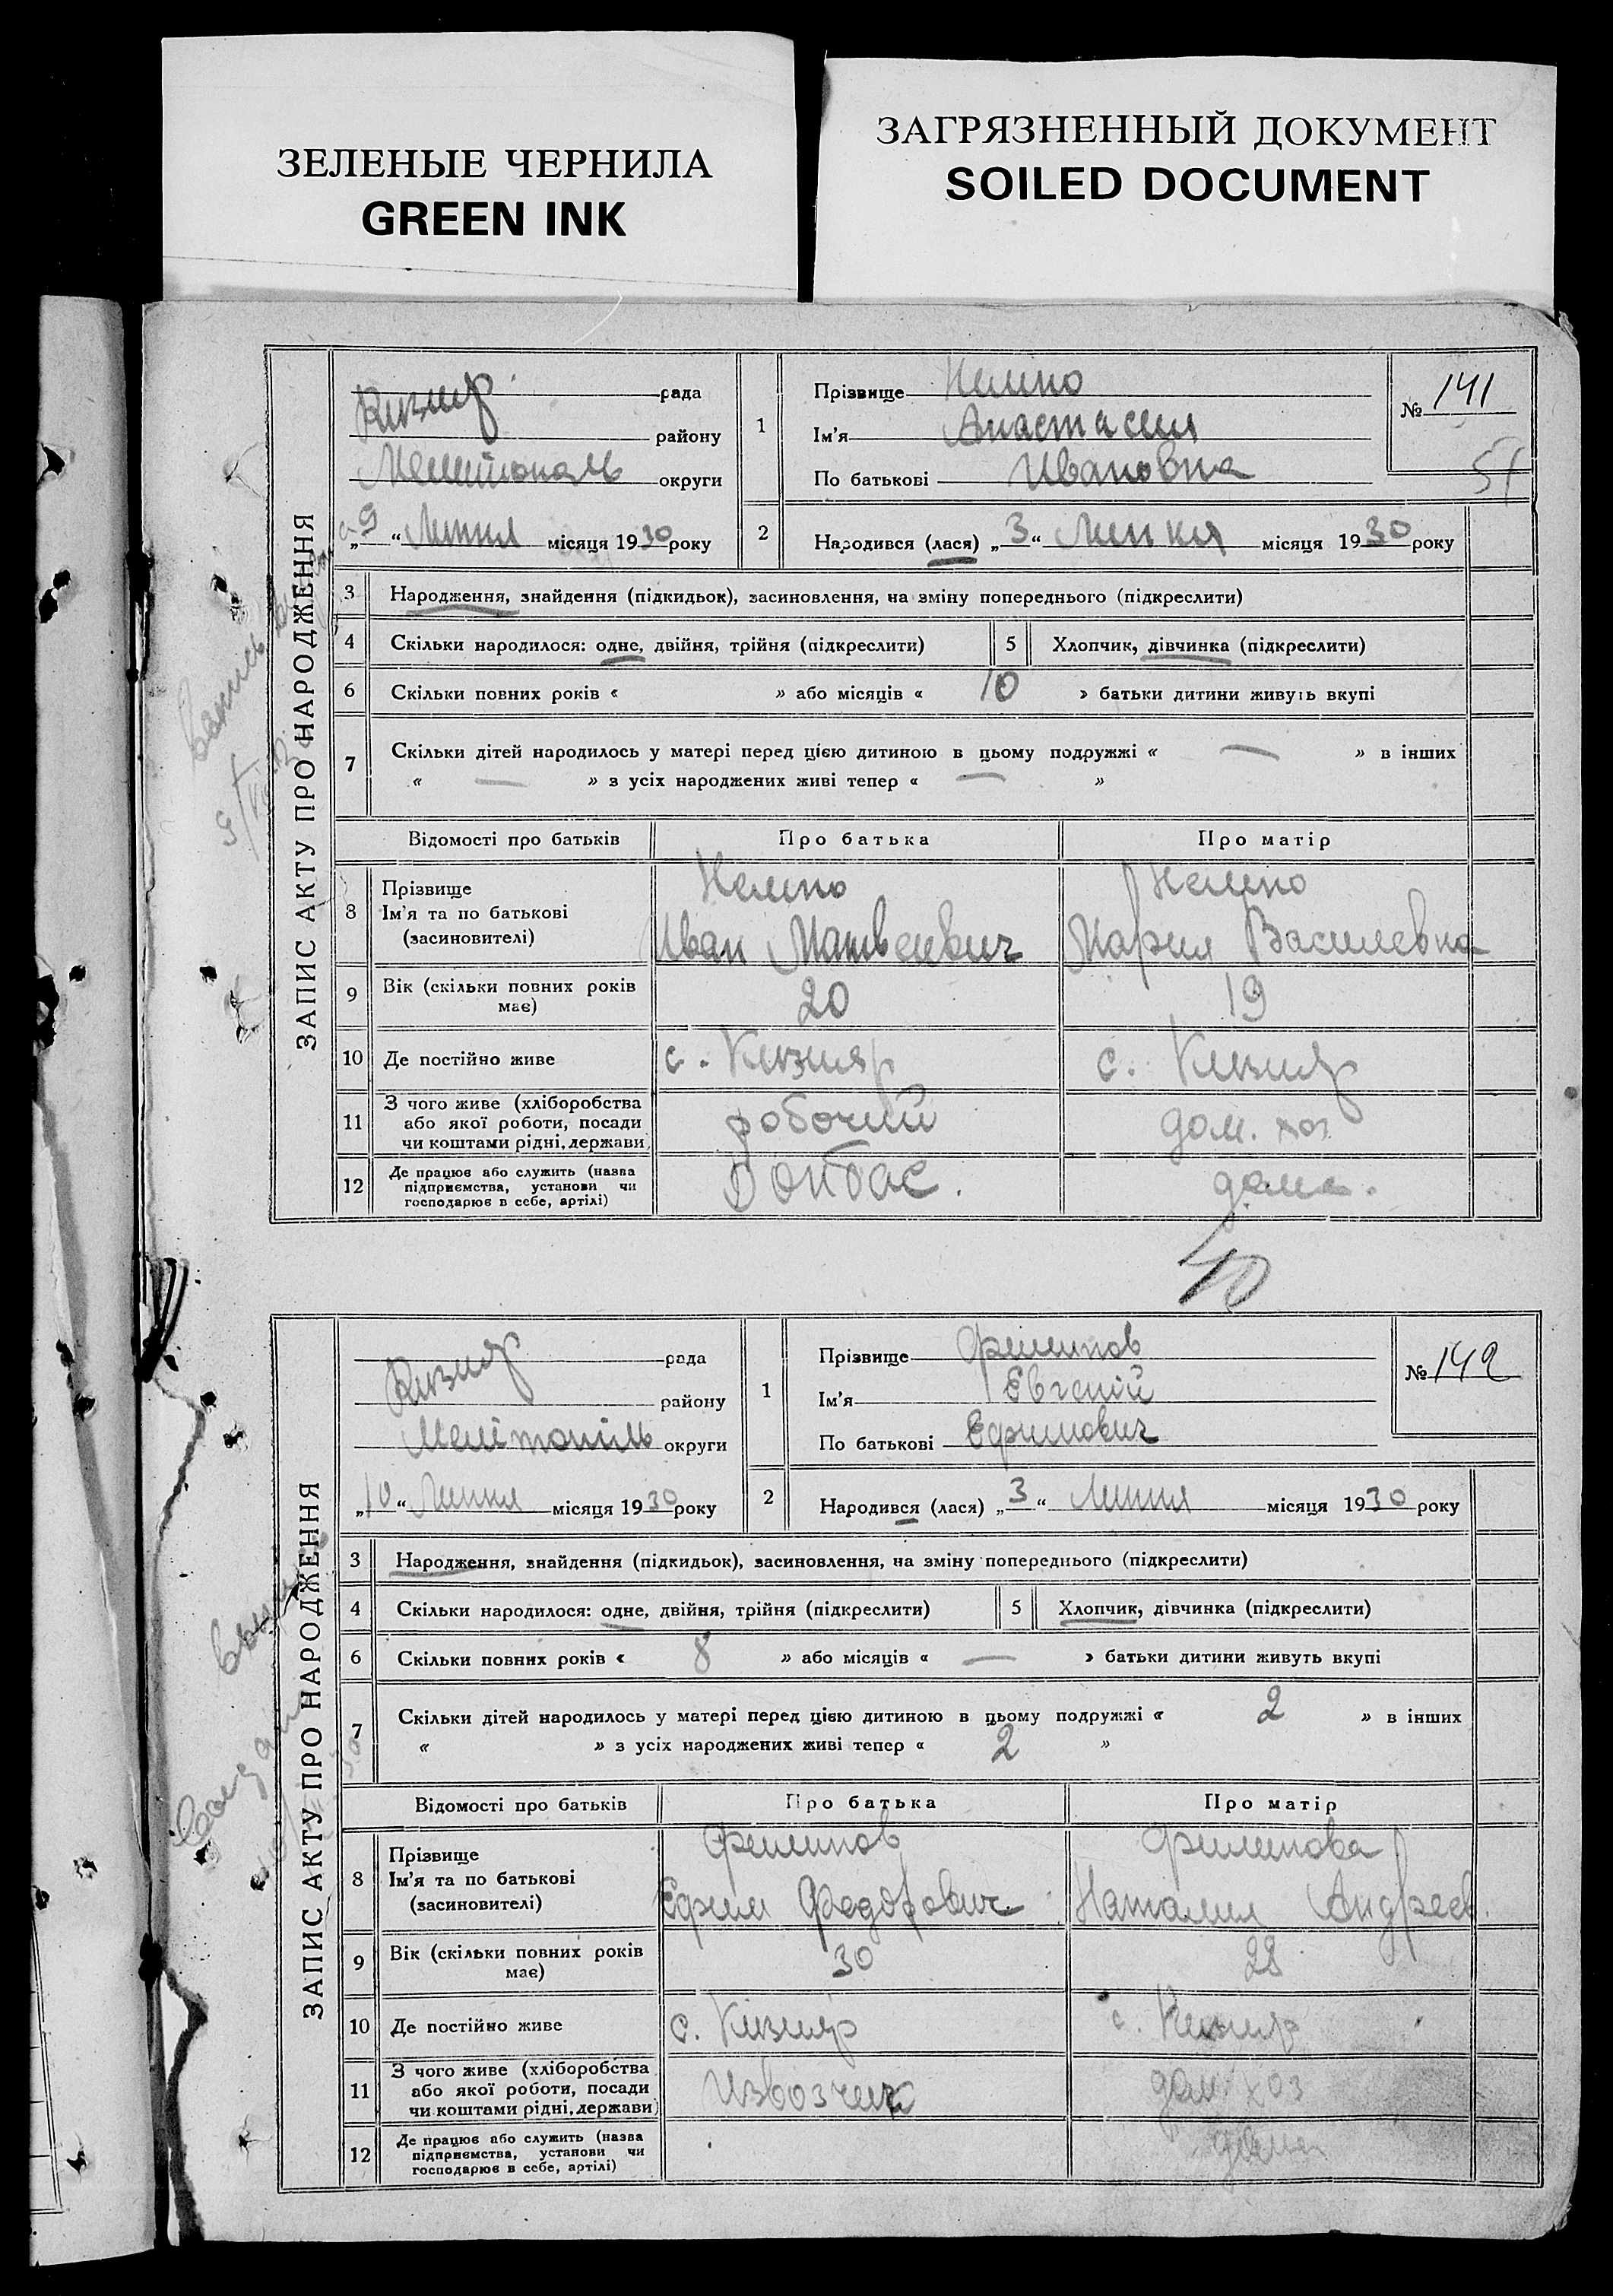 ЗЕЛЕНЫЕ ЧЕРНИЛА
GREEN INK
ЗАГРЯЗНЕННЫЙ ДОКУМЕНТ
SOILED DOCUMENT
ЗАПИС АКТУ ПРО НАРОДЖЕННЯ
Кизияр рада
району
округи
„9“ Липня місяця 1930 року
1
Прізвище
Ім'я Анастасия
По батькові Ивановна
№ 141
51
2 Народився (лася) „3“ Липня місяця 1930 року
3 Народження, знайдення (підкидьок), засиновлення, на зміну попереднього (підкреслити)
4 Скільки народилося: одне, двійня, трійня (підкреслити) 5 Хлопчик, дівчинка (підкреслити)
6 Скільки повних років « » або місяців « 10 » батьки дитини живуть вкупі
7 Скільки дітей народилось у матері перед цією дитиною в цьому подружжі « — » в інших
« — » з усіх народжених живі тепер « — »
Відомості про батьків Про батька Про матір
8 Прізвище
Ім'я та по батькові Иван Матвеевич Мария Василевна
(засиновителі)
9 Вік (скільки повних років має) 20 19
10 Де постійно живе с. Кизияр с. Кизияр
11 З чого живе (хліборобства або якої роботи, посади чи коштами рідні, держави) робочий дом. хоз
12 Де працює або служить (назва підприємства, установи чи господарює в себе, артілі) Донбас. дома.
ЗАПИС АКТУ ПРО НАРОДЖЕННЯ
Кизияр рада
району
Мелітопіль округи
„10“ Липня місяця 1930 року
1
Прізвище Филипов
Ім'я Евгений
По батькові Ефимович
№ 142
2 Народився (лася) „3“ Липня місяця 1930 року
3 Народження, знайдення (підкидьок), засиновлення, на зміну попереднього (підкреслити)
4 Скільки народилося: одне, двійня, трійня (підкреслити) 5 Хлопчик, дівчинка (підкреслити)
6 Скільки повних років « 8 » або місяців « — » батьки дитини живуть вкупі
7 Скільки дітей народилось у матері перед цією дитиною в цьому подружжі « 2 » в інших
« » з усіх народжених живі тепер « 2 »
Відомості про батьків Про батька Про матір
8 Прізвище Филипов Филипова
Ім'я та по батькові Ефим Федорович Наталия Андреев.
(засиновителі)
9 Вік (скільки повних років має) 30 28
10 Де постійно живе с. Кизияр с. Кизияр
11 З чого живе (хліборобства або якої роботи, посади чи коштами рідні, держави) Извозчик дом хоз
12 Де працює або служить (назва підприємства, установи чи господарює в себе, артілі) дома